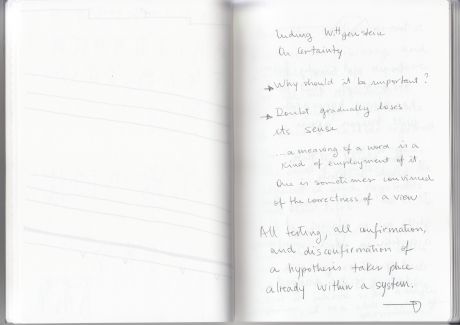 Ludwig Wittgenstein
On Certainty
→ Why should it be important?
→ Doubt gradually loses
its sense
...a meaning of a word is a
kind of employment of it.
One is sometimes convinced
of the correctness of a view
All testing, all confirmation,
and disconfirmation of
a hypothesis takes place
already within a system.